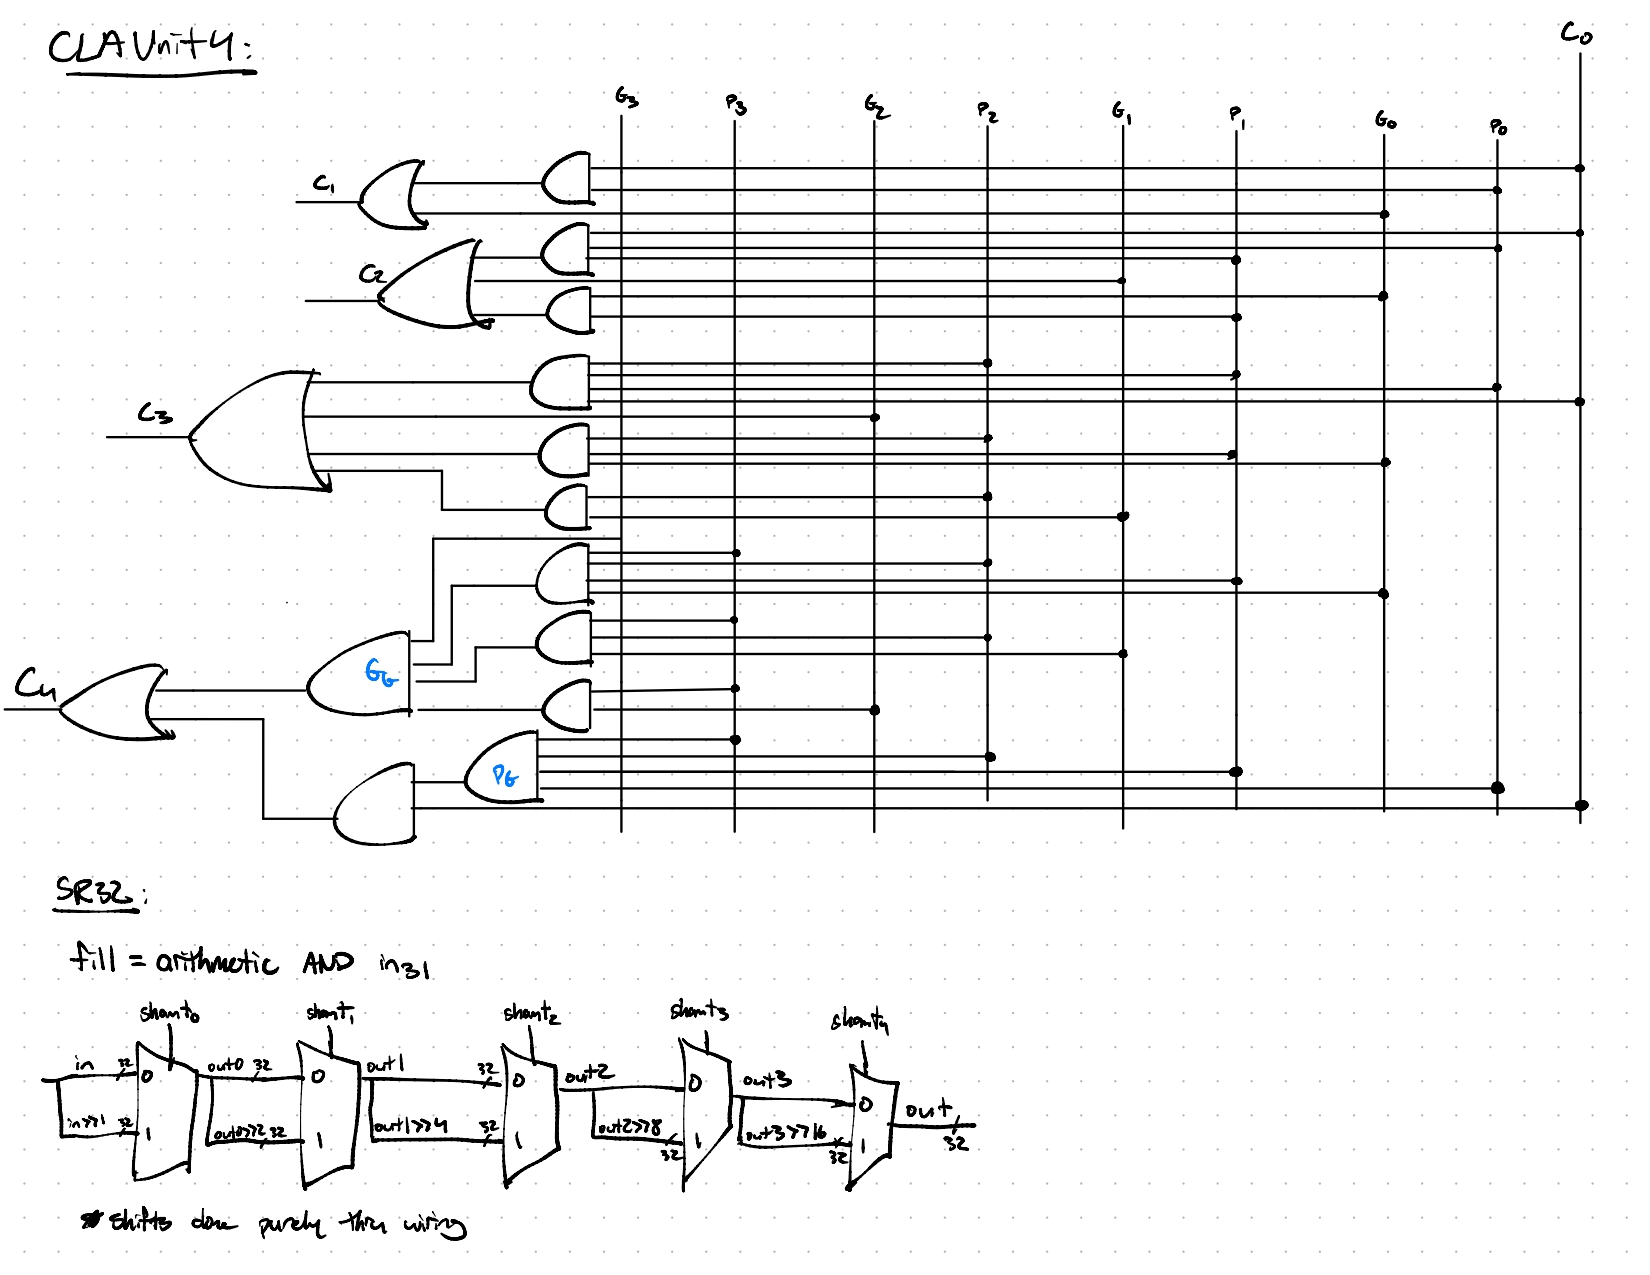 CLAUnit4:
C0
G3 P3 G2 P2 G1 P1 G0 P0
C1
C2
C3
GG
C4
PG
SR32:
fill = arithmetic AND in31
shamt0 shamt1 shamt2 shamt3 shamt4
in 32 0 out0 32 0 out1 32 0 out2 0 out3 0 out 32
in>>1 32 1 out0>>2 32 1 out1>>4 32 1 out2>>8 32 1 out3>>16 32 1
* shifts done purely thru wiring